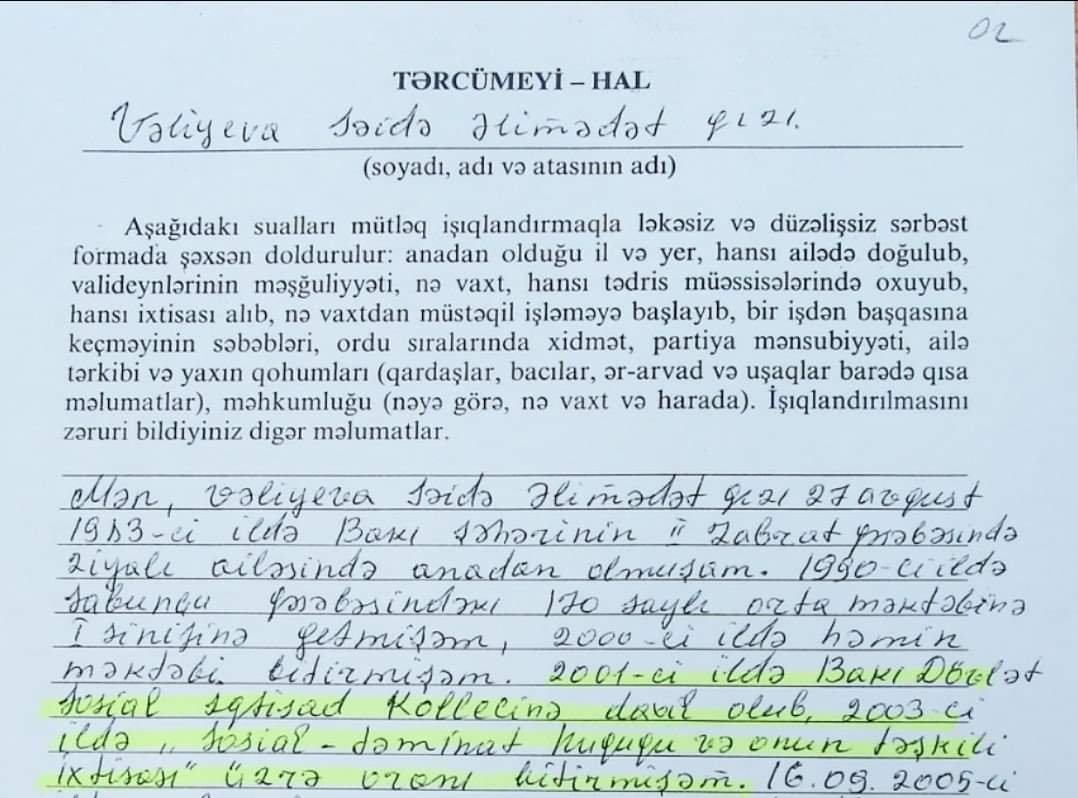 02
TƏRCÜMEYİ – HAL
Vəliyeva Səidə Əlimədət qızı.
(soyadı, adı və atasının adı)
Aşağıdakı sualları mütləq işıqlandırmaqla ləkəsiz və düzəlişsiz sərbəst
formada şəxsən doldurulur: anadan olduğu il və yer, hansı ailədə doğulub,
valideynlərinin məşğuliyyəti, nə vaxt, hansı tədris müəssisələrində oxuyub,
hansı ixtisası alıb, nə vaxtdan müstəqil işləməyə başlayıb, bir işdən başqasına
keçməyinin səbəbləri, ordu sıralarında xidmət, partiya mənsubiyyəti, ailə
tərkibi və yaxın qohumları (qardaşlar, bacılar, ər-arvad və uşaqlar barədə qısa
məlumatlar), məhkumluğu (nəyə görə, nə vaxt və harada). İşıqlandırılmasını
zəruri bildiyiniz digər məlumatlar.
Mən, Vəliyeva Səidə Əlimədət qızı 27 avqust
1983-ci ildə Bakı şəhərinin II Zabrat qəsəbəsində
ziyalı ailəsində anadan olmuşam. 1990-ci ildə
Sabunçu qəsəbəsindəki 170 saylı orta məktəbinə
I sinifinə getmişəm, 2000-ci ildə həmin
məktəbi bitirmişəm. 2001-ci ildə Bakı Dövlət
Sosial İqtisad Kollecinə daxil olub, 2003-ci
ildə "Sosial-təminat hüququ və onun təşkili
ixtisası" üzrə oranı bitirmişəm. 16.09.2005-ci